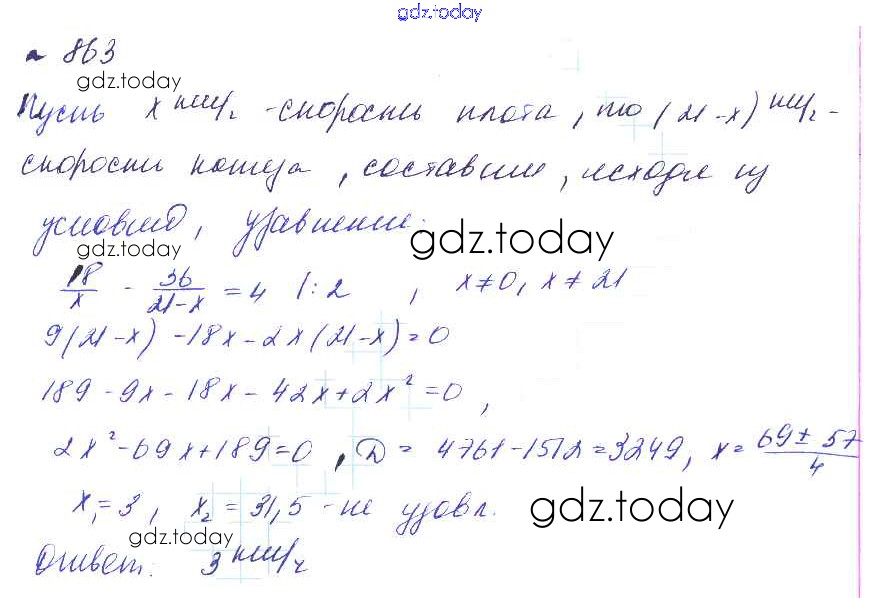 gdz.today
863
gdz.today
Пусть x км/ч - скорость плота, то (21-x) км/ч -
скорость катера, составим, исходя из
условия, уравнение:
gdz.today
gdz.today
18/x - 36/(21-x) = 4 |:2 , x≠0, x≠21
9(21-x) - 18x - 2x(21-x) = 0
189 - 9x - 18x - 42x + 2x² = 0 ,
2x² - 69x + 189 = 0 , D = 4761 - 1512 = 3249, x = (69 ± 57)/4
x₁ = 3 , x₂ = 31,5 - не удовл.
gdz.today
gdz.today
Ответ: 3 км/ч